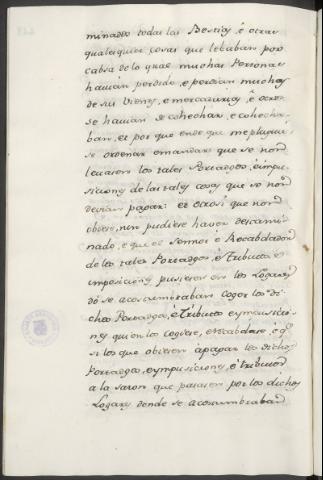 minadas todas las Bestias, é otras
qualesquier cosas que lebaban por
cabsa de lo qual muchas Personas
havian perdido, e perdian muchos
de sus vienes, e mercadurias, é otros
se havian de cohechar, e cohecha-
ban, et por ende que me pluguie
se ordenar e mandar que se non
levasen los tales Portadgos, é impu-
siciones de las tales cosas que se non
devian pagar: et caso que non
obiese, nin pudiere haver descami
nado, e que el Sennor é Recabdador
de los tales Portadgos, é Tributos é
imposiciones pusiesen en los Logares
dó se acostumbraban coger los di-
chos Portadgos, é Tributos é ymposicio
nes quien los cogiese, é recabdase, é q.e
si los que obiesen á pagar los dichos
Portadgos, e ymposiciones, é tributos
a la saron que pasasen por los dichos
Logares donde se acostumbraban